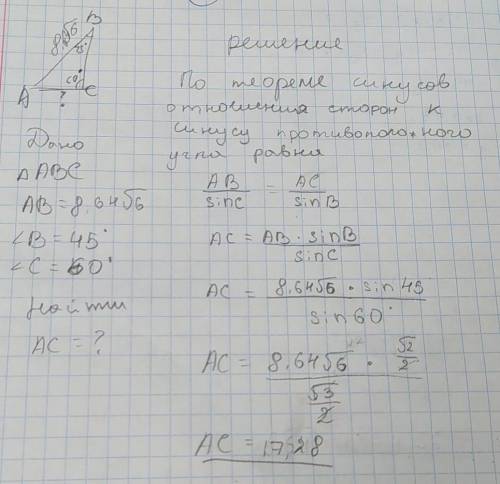 B
8.√6
45°
60°
A
?
C
Дано
△ABC
AB = 8.64√6
∠B = 45°
∠C = 60°
Найти
AC = ?
решение
По теореме синусов
отношения сторон к
синусу противоположного
угла равна
AB/sinC = AC/sinB
AC = AB · sinB / sinC
AC = 8.64√6 · sin 45 / sin 60°
AC = 8.64√6 · √2/2 / √3/2
AC = 17,28